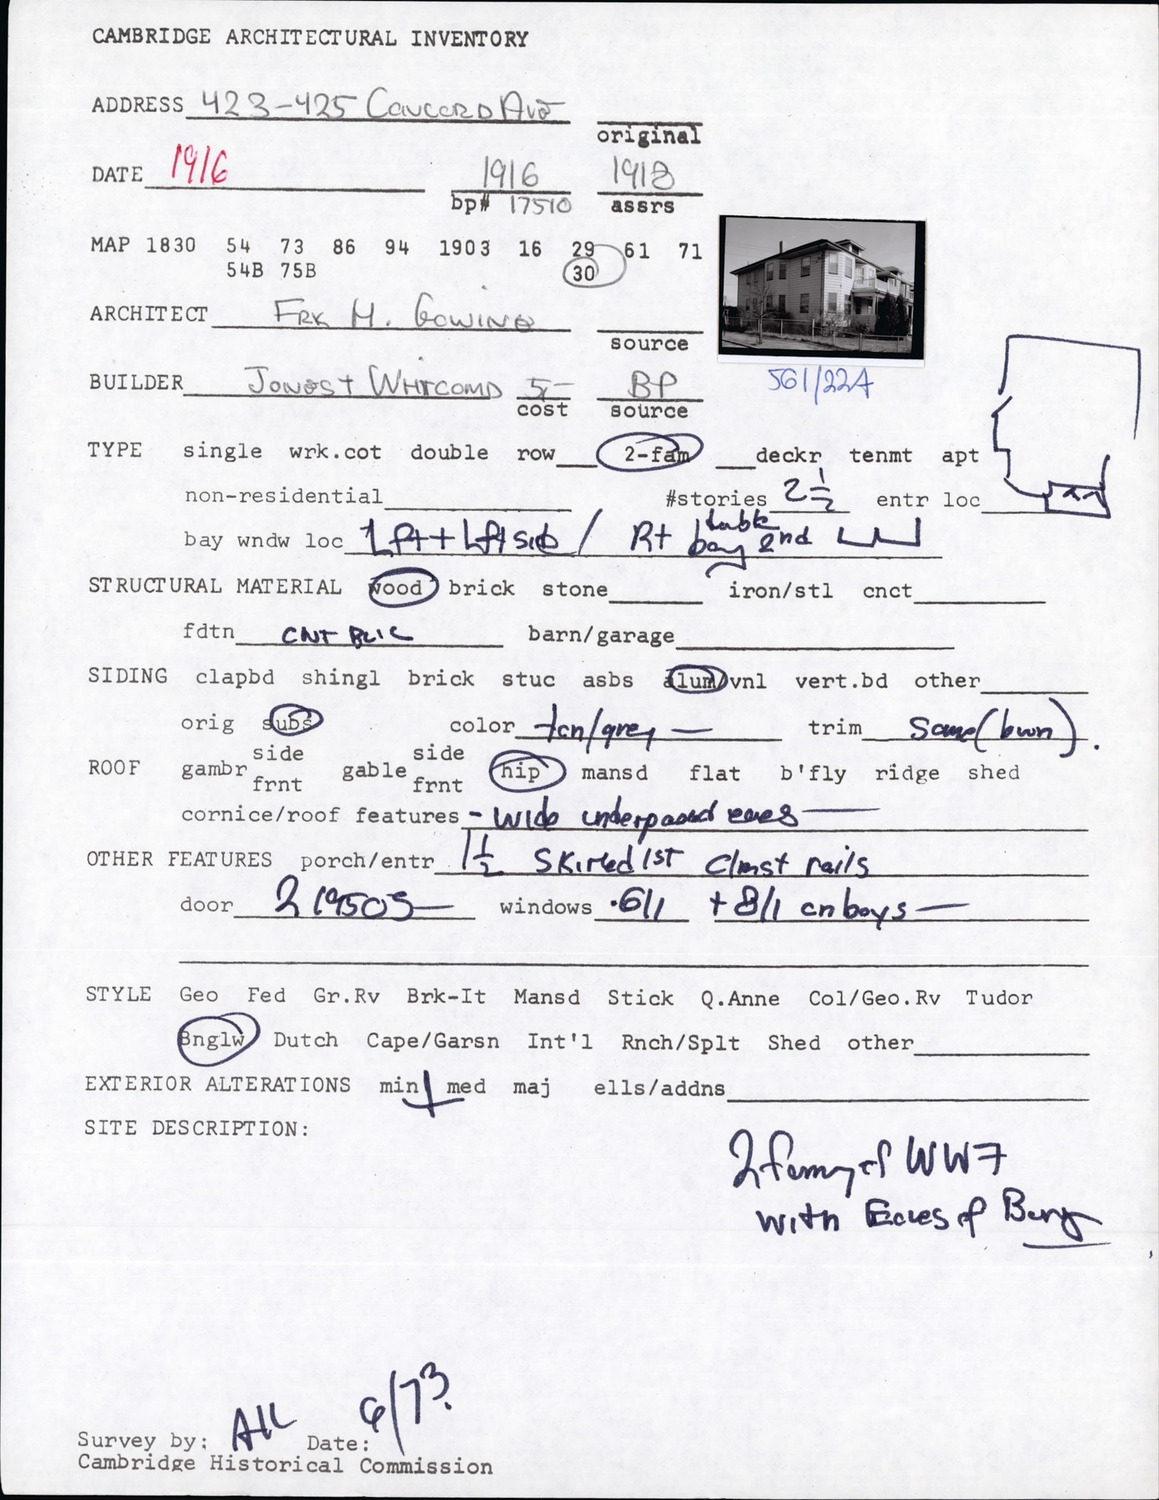 CAMBRIDGE ARCHITECTURAL INVENTORY
ADDRESS 423-425 Concord Ave
original
DATE 1916 1916 1918
bp# 17510 assrs
MAP 1830 54 73 86 94 1903 16 29 61 71
54B 75B 30
ARCHITECT Frk H. Gowing
source
BUILDER Jones + Whitcomb 5,- BP
cost source
561/22A
TYPE single wrk.cot double row 2-fam deckr tenmt apt
non-residential #stories 2 1/2 entr loc
bay wndw loc 1 Ft + Lft side / Rt bay 2nd
STRUCTURAL MATERIAL wood brick stone iron/stl cnct
fdtn CNT BLK barn/garage
SIDING clapbd shingl brick stuc asbs alum/vnl vert.bd other
orig subs color tan/grey — trim Same (bwn).
side side
ROOF gambr gable hip mansd flat b'fly ridge shed
frnt frnt
cornice/roof features - Wide eaves —
OTHER FEATURES porch/entr 1 1/2 Skirted 1st rails
door 2 1950s — windows 6/1 + 8/1 on bays —
STYLE Geo Fed Gr.Rv Brk-It Mansd Stick Q.Anne Col/Geo.Rv Tudor
Bnglw Dutch Cape/Garsn Int'l Rnch/Splt Shed other
EXTERIOR ALTERATIONS min med maj ells/addns
SITE DESCRIPTION:
2 family of
with Eaves of
Survey by: Date: 6/73
Cambridge Historical Commission